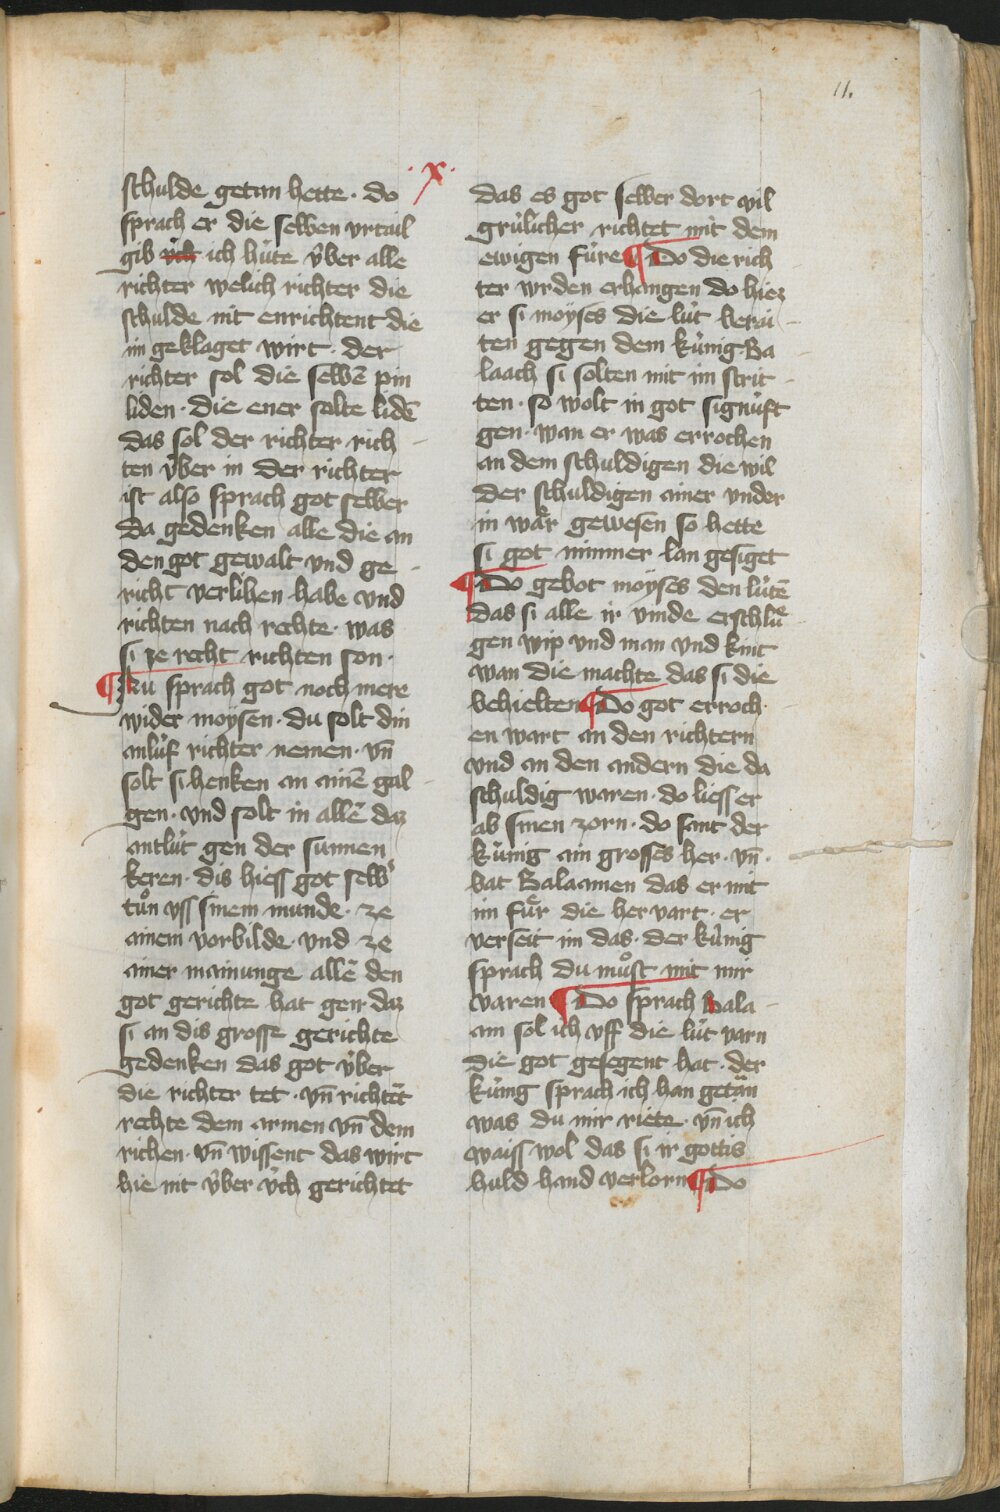 11.
.x.
schulde getan hette · do
sprach er die selben vrtail
gib v́ch ich húte v́ber alle
richter welich richter die
schulde nit enrichtent die
im geklaget wirt · der
richter sol die selbē pin
liden · die ener solte lidē
das sol der richter rich
ten v́ber in der richter
ist also sprach got selber
da gedenken alle die an
den got gewalt vnd ge
richt verlihen habe vnd
richten nach rechte · was
si ze recht richten son ·
¶ Nu sprach got noch mere
wider moysen · du solt din
anlúf richter nemen · vn̄
solt si henken an ainē gal
gen · vnd solt in allē daz
antlút gen der sunnen
keren · dis hiess got selb᷒
tůn vss sinem munde · ze
ainem vorbilde · vnd ze
ainer mainunge allē den
got gerichte hat gen · daz
si an dis grosse gerichte
gedenken das got v́ber
die richter tet · vn̄ richtēt
rechte dem armen vn̄ dem
richen · vn̄ wissent das wirt
hie nit v́ber v́ch gerichtet
das es got selber dort vil
grúlicher richtet mit dem
ewigen fúre ¶ Do die rich
ter wrden erhangen do hiez
er si moyses die lút berai
ten gegen dem kúnig Ba
laach si solten mit im strit
ten · so wolt in got signúft
gen · wan er was errochen
an dem schuldigen die wil
der schuldigen ainer vnder
in wår gewesen so hette
si got nimmer lan gesiget
¶ Do gebot moyses den lútē
das si alle ir vinde erschlů
gen wip vnd man vnd kint
wan die machte das si die
behielten ¶ Do got erroch
en wart an den richtern
vnd an den andern die da
schuldig waren · do liess er
ab sinen zorn · do sant der
kúnig ain grosses her · vn̄ ·
bat Balaamen das er mit
im fůr die hervart · er
verseit im das · der kúnig
sprach du můst mit mir
varen ¶ Do sprach Bala
am sol ich vff die lút varn
die got gesegent hat · der
kúnig sprach ich han getän
was du mir riete · vn̄ ich
waiss wol das si ir gottis
huld hand verlorn ¶ Do